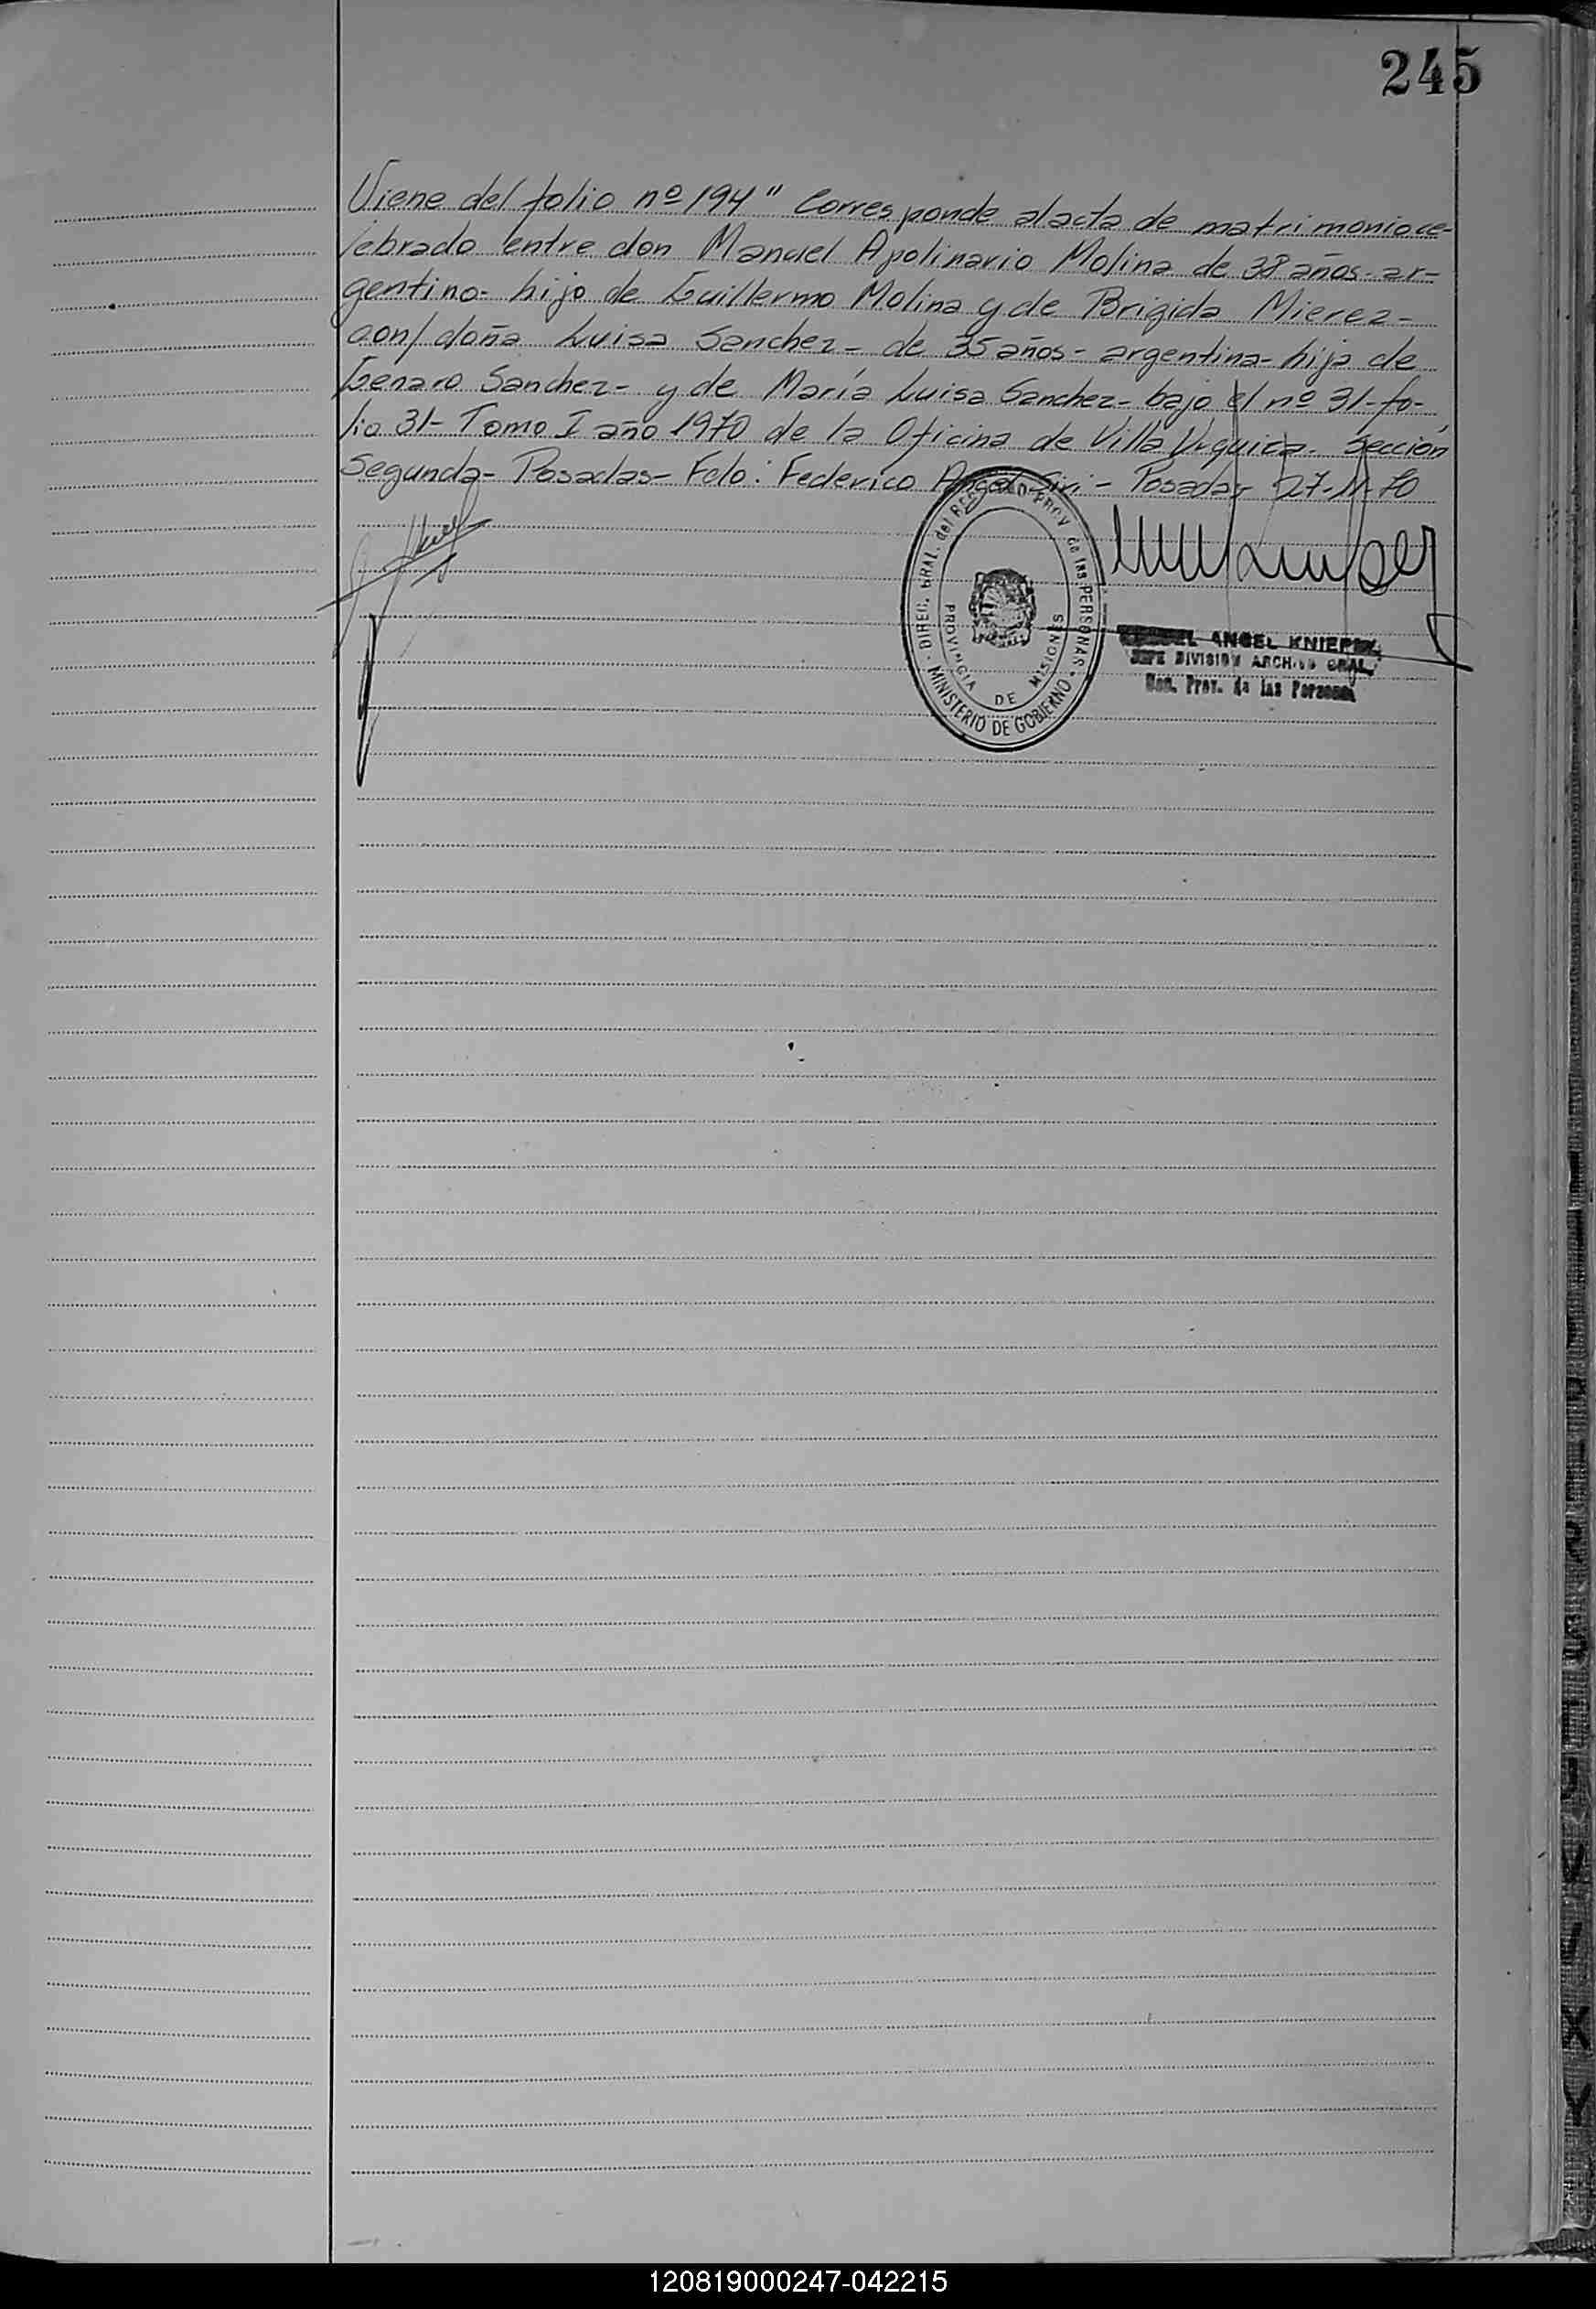 245
Viene del folio nº 194" Corresponde al acta de matrimonio ce-
lebrado entre don Manuel Apolinario Molina de 38 años- ar-
gentino- hijo de Guillermo Molina y de Brigida Mierez-
con/ doña Luisa Sanchez- de 35 años- argentina- hija de
Genaro Sanchez- y de María Luisa Sanchez- bajo el nº 31- fo-
lio 31- Tomo I año 1970 de la Oficina de Villa Urquiza. Sección
Segunda- Posadas- Fdo: Federico Angel - Posadas 27-11-70
DIREC. GRAL. del REG. PROV. de las PERSONAS
PROVINCIA DE MISIONES
MINISTERIO DE GOBIERNO
ANGEL
JEFE DIVISION ARCHIVO GRAL.
Prov. de las Personas
120819000247-042215